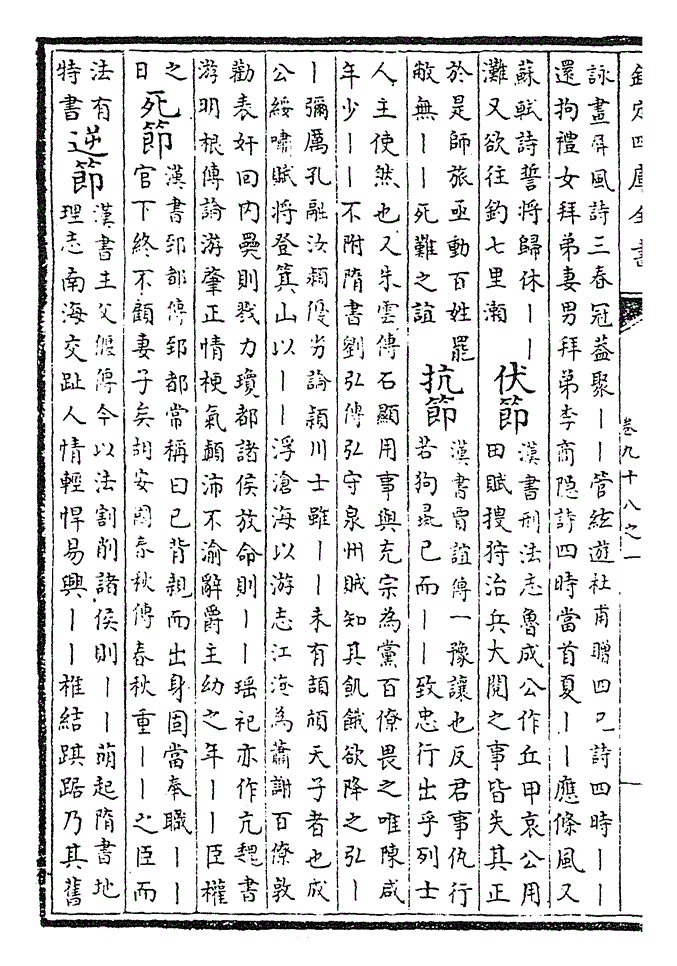 欽定四庫全書
卷九十八之一
詠畫屏風詩三春冠蓋聚丨丨管絃遊杜甫贈四兄詩四時丨丨
還拘禮女拜弟妻男拜弟李商隠詩四時當首夏丨丨應條風又
蘇軾詩誓將歸休丨丨
灘又欲往釣七里瀨
伏節
漢書刑法志魯成公作丘甲哀公用
田賦搜狩治兵大閱之事皆失其正
於是師旅亟動百姓罷
敝無丨丨死難之誼
抗節
漢書賈誼傳一豫讓也反君事仇行
若狗彘已而丨丨致忠行出乎列士
人主使然也又朱雲傳石顯用事與充宗為黨百僚畏之唯陳咸
年少丨丨不附隋書劉弘傳弘守泉州賊知其飢餓欲降之弘丨
丨彌厲孔融汝潁優劣論潁川士雖丨丨未有頡頏天子者也成
公綏嘯賦將登箕山以丨丨浮滄海以游志江淹為蕭謝百僚敦
勸表奸回内舋則戮力瓊都諸侯放命則丨丨瑶祀亦作亢魏書
游明根傳論游肇正情梗氣顛沛不渝辭爵主幼之年丨丨臣權
之
日
死節
漢書郅都傳郅都常稱曰已背親而出身固當奉職丨丨
官下終不顧妻子矣胡安國春秋傳春秋重丨丨之臣而
法有
特書
逆節
漢書主父偃傳今以法割削諸侯則丨丨萌起隋書地
理志南海交趾人情輕悍易興丨丨椎結踑踞乃其舊